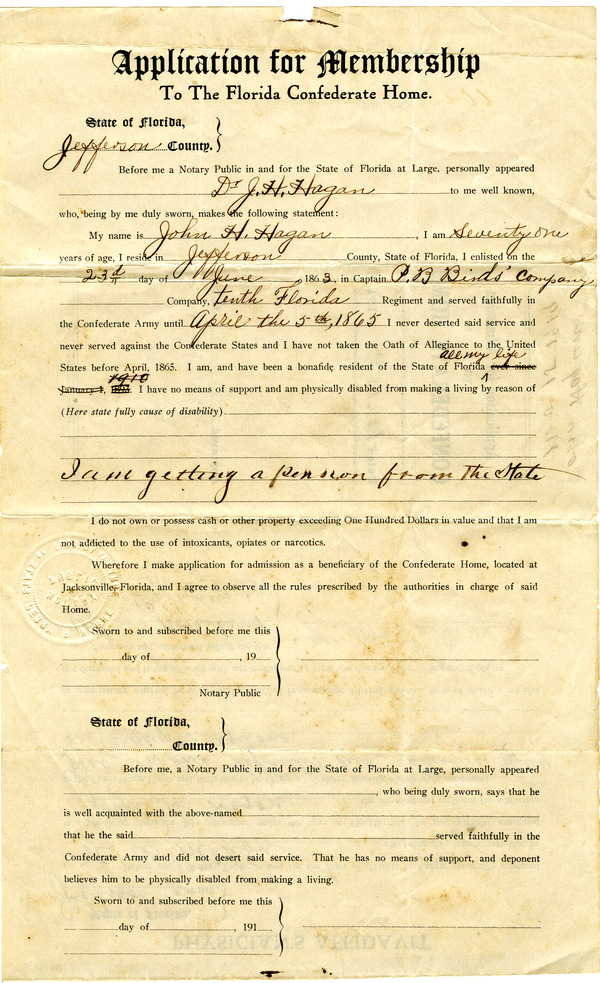 Application for Membership
To The Florida Confederate Home.
State of Florida,
Jefferson County.
Before me a Notary Public in and for the State of Florida at Large, personally appeared
Dr J. H. Hagan to me well known,
who, being by me duly sworn, makes the following statement:
My name is John H. Hagan, I am Seventy one
years of age, I reside in Jefferson County, State of Florida, I enlisted on the
23d day of June 1863, in Captain P. B Birds' Company
Company, tenth Florida Regiment and served faithfully in
the Confederate Army until April the 5th, 1865 I never deserted said service and
never served against the Confederate States and I have not taken the Oath of Allegiance to the United
all my life
States before April, 1865. I am, and have been a bonafide resident of the State of Florida ever since
1910
January 1, I have no means of support and am physically disabled from making a living by reason of
(Here state fully cause of disability)
I am getting a pension from the State
I do not own or possess cash or other property exceeding One Hundred Dollars in value and that I am
not addicted to the use of intoxicants, opiates or narcotics.
Wherefore I make application for admission as a beneficiary of the Confederate Home, located at
Jacksonville, Florida, and I agree to observe all the rules prescribed by the authorities in charge of said
Home.
Sworn to and subscribed before me this
day of , 19
Notary Public
State of Florida,
County.
Before me, a Notary Public in and for the State of Florida at Large, personally appeared
, who being duly sworn, says that he
is well acquainted with the above-named
that he the said served faithfully in the
Confederate Army and did not desert said service. That he has no means of support, and deponent
believes him to be physically disabled from making a living.
Sworn to and subscribed before me this
day of , 191